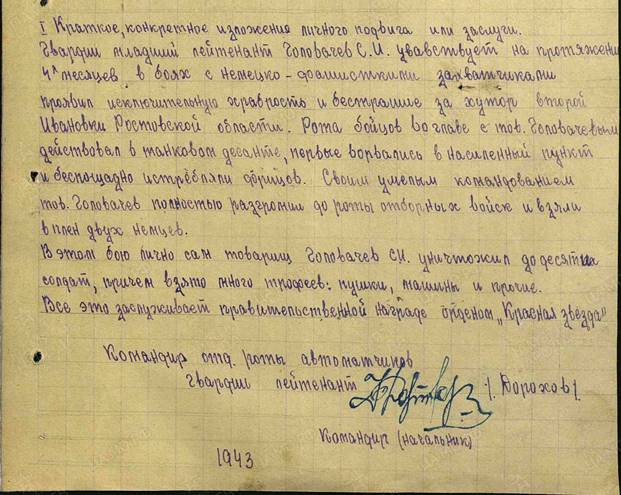 I Краткое, конкретное изложение личного подвига или заслуги.
Гвардии младший лейтенант Головачев С.И. увавствует на протяжении
4х месяцев в боях с немецко-фашисткими захватчиками
проявил исключительную храбрость и бестрашие за хутор второй
Ивановки Ростовской области. Рота бойцов во главе с тов. Головачевым
действовал в танковом десанте, первые ворвались в населенный пункт
и беспощадно истребляли фрицов. Своим умелым командованием
тов. Головачев полностью разгромил до роты отборных войск и взяли
в плен двух немцев.
В этом бою лично сам товарищ Головачев С.И. уничтожил до десятих
солдат, причем взято много трофеев: пушки, машины и прочие.
Все это заслуживает правительственной награде орденом „Красная звезда"
Командир отд. роты автоматчиков
гвардии лейтенант /. Борохов /.
Командир (начальник)
1943